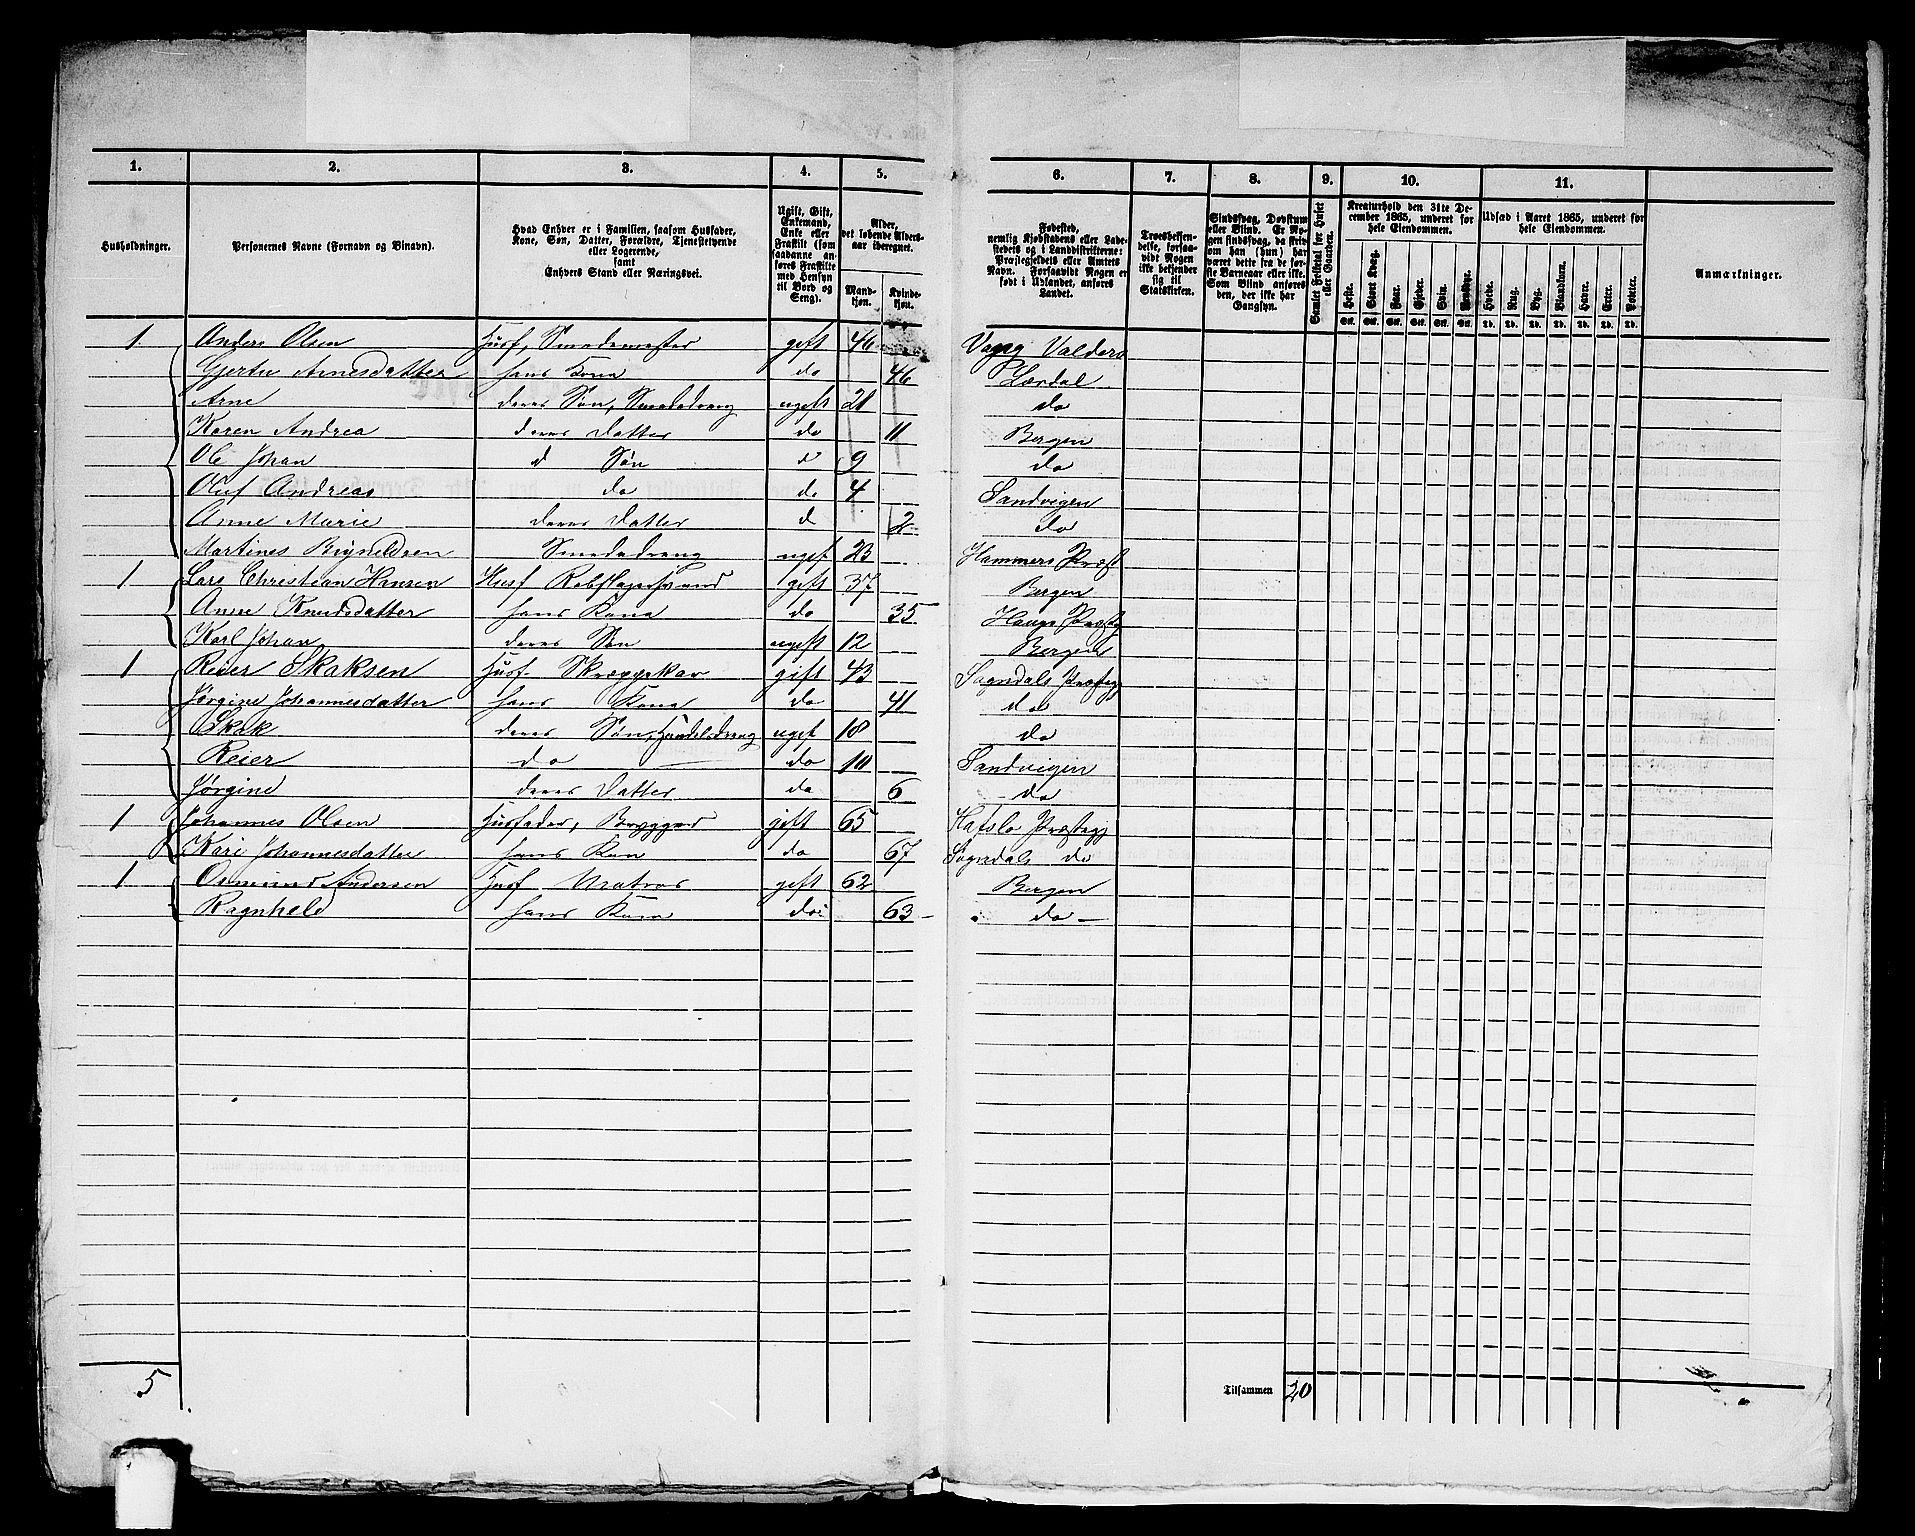 1. 2. 3. 4. 5. 6. 7. 8. 9. 10. 11.
Husholdninger.
Personernes Navne (Fornavn og Binavn).
Hvad Enhver er i Familien, saasom Husfader,
Kone, Søn, Datter, Forældre, Tjenestetyende
eller Logerende,
samt
Enhvers Stand eller Næringsvei.
Ugift, Gift,
Enkemand,
Enke eller
Fraskilt (som
saadanne an-
føres Fraskilte
med Hensyn
til Bord og
Seng).
Alder,
det løbende Alders-
aar iberegnet.
Mand-
kjøn.
Kvinde-
kjøn.
Fødested,
nemlig Kjøbstadens eller Lade-
stedets og i Landdistrikterne:
Præstegjeldets eller Amtets
Navn. Forsaavidt Nogen er
født i Udlandet, anføres
Landet.
Troesbekjen-
delse, forsaa-
vidt Nogen
ikke bekjender
sig til
Statskirken.
Sindssvag, Døvstum
eller Blind. Er No-
gen sindssvag, da skriv
om han (hun) har
været dette fra de før-
ste Barneaar eller ikke.
Som Blind anføres
den, der ikke har
Gangsyn.
Samlet Folketal for Huset
eller Gaarden.
Kreaturhold den 31te De-
cember 1865, underet for
hele Eiendommen.
Heste. Stort Kvæg. Faar. Gjeder. Svin. Rensdyr.
Stk. Stk. Stk. Stk. Stk. Stk.
Udsæd i Aaret 1865, underet for
hele Eiendommen.
Hvede. Rug. Byg. Blandkorn. Havre. Erter. Poteter.
Td. Td. Td. Td. Td. Td. Td.
Anmærkninger.
1. Anders Olsen Husf, Smedemester gift 46 Vang Valders
Gjertru Arnesdatter hans Kone do 46 Lærdal
Arne deres Søn, Smededreng ugift 21 do
Karen Andrea deres Datter do 11 Bergen
Ole Johan d Søn d 9 do
Oluf Andreas do do 4 Sandvigen
Anne Marie deres Datter d 2 do
Martines Smededreng ugift 23 Hammers Præst
1 Lars Christian Hansen Husf gift 37 Bergen
Anne Knudsdatter hans Kone do 35 Haugs Præstg
Karl Johan deres Søn ugift 12 Bergen
1 Reier Skaksen Husf Skræppekar gift 43 Sogndals Præsteg
Jørgine Johannesdatter hans Kone do 41 do
Skak deres Søn, Handelsdreng ugift 18 do
Reier do do 10 Sandvigen
Jørgine deres Datter do 6 do
1 Johannes Olsen Husfader, gift 65 Hafslo Præstegj
Kari Johannesdatter hans Kon do 67 Sogndals do
1 Osmund Andersen Husf Matros gift 62 Bergen
Ragnhele hans Kone do 63 do
5
Tilsammen 20